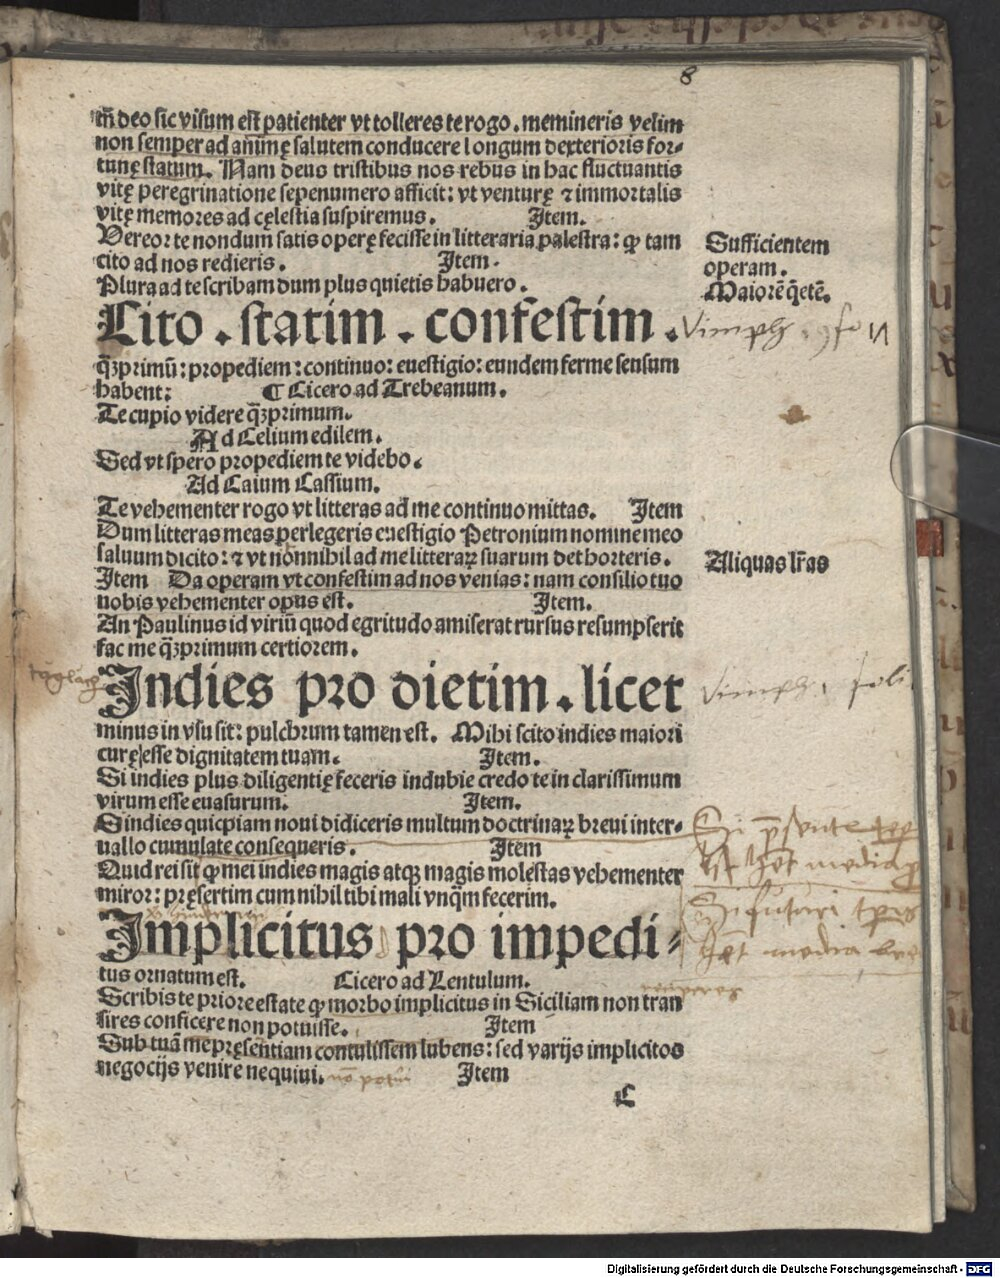 8
m̄ deo sic visum est patienter vt tolleres te rogo. memineris velim
non semper ad animę salutem conducere longum dexterioris for⸗
tunę statum. Nam deus tristibus nos rebus in hac fluctuantis
vitę peregrinatione sepenumero afficit: vt venturę ⁊ immortalis
vitę memores ad cęlestia suspiremus. Item.
Vereor te nondum satis operę fecisse in litteraria palestra: ꝙ tam
cito ad nos redieris. Item.
Plura ad te scribam dum plus quietis habuero.
Sufficientem
operam.
Maiorē q̄etē.
Cito. statim. confestim.
q̄ꝫprimū: propediem: continuo: euestigio: eundem ferme sensum
habent: ¶ Cicero ad Trebeanum.
Te cupio videre q̄ꝫprimum.
Ad Celium edilem.
Sed vt spero propediem te videbo.
Ad Caium Cassium.
Te vehementer rogo vt litteras ad me continuo mittas. Item
Dum litteras meas perlegeris euestigio Petronium nomine meo
saluum dicito: ⁊ vt nonnihil ad me litterarꝝ suarum det horteris.
Aliquas lr̄as
Item Da operam vt confestim ad nos venias: nam consilio tuo
nobis vehementer opus est. Item.
An Paulinus id viriū quod egritudo amiserat rursus resumpserit
fac me q̄ꝫprimum certiorem.
Indies pro dietim. licet
minus in vsu sit: pulchrum tamen est. Mihi scito indies maiori
curę esse dignitatem tuam. Item.
Si indies plus diligentię feceris indubie credo te in clarissimum
virum esse euasurum. Item.
Si indies quicpiam noui didiceris multum doctrinarꝝ breui inter⸗
uallo cumulate consequeris. Item
Quid rei sit ꝙ mei indies magis atqꝫ magis molestas vehementer
miror: pręsertim cum nihil tibi mali vnq̄m fecerim.
Implicitus pro impedi⸗
tus ornatum est. Cicero ad Lentulum.
Scribis te priore estate ꝙ morbo implicitus in Siciliam non tran
sires conficere non potuisse. Item
Sub tuā me pręsentiam contulissem lubens: sed varijs implicitos
negocijs venire nequiui. nō potui Item
C
Digitalisierung gefördert durch die Deutsche Forschungsgemeinschaft - DFG